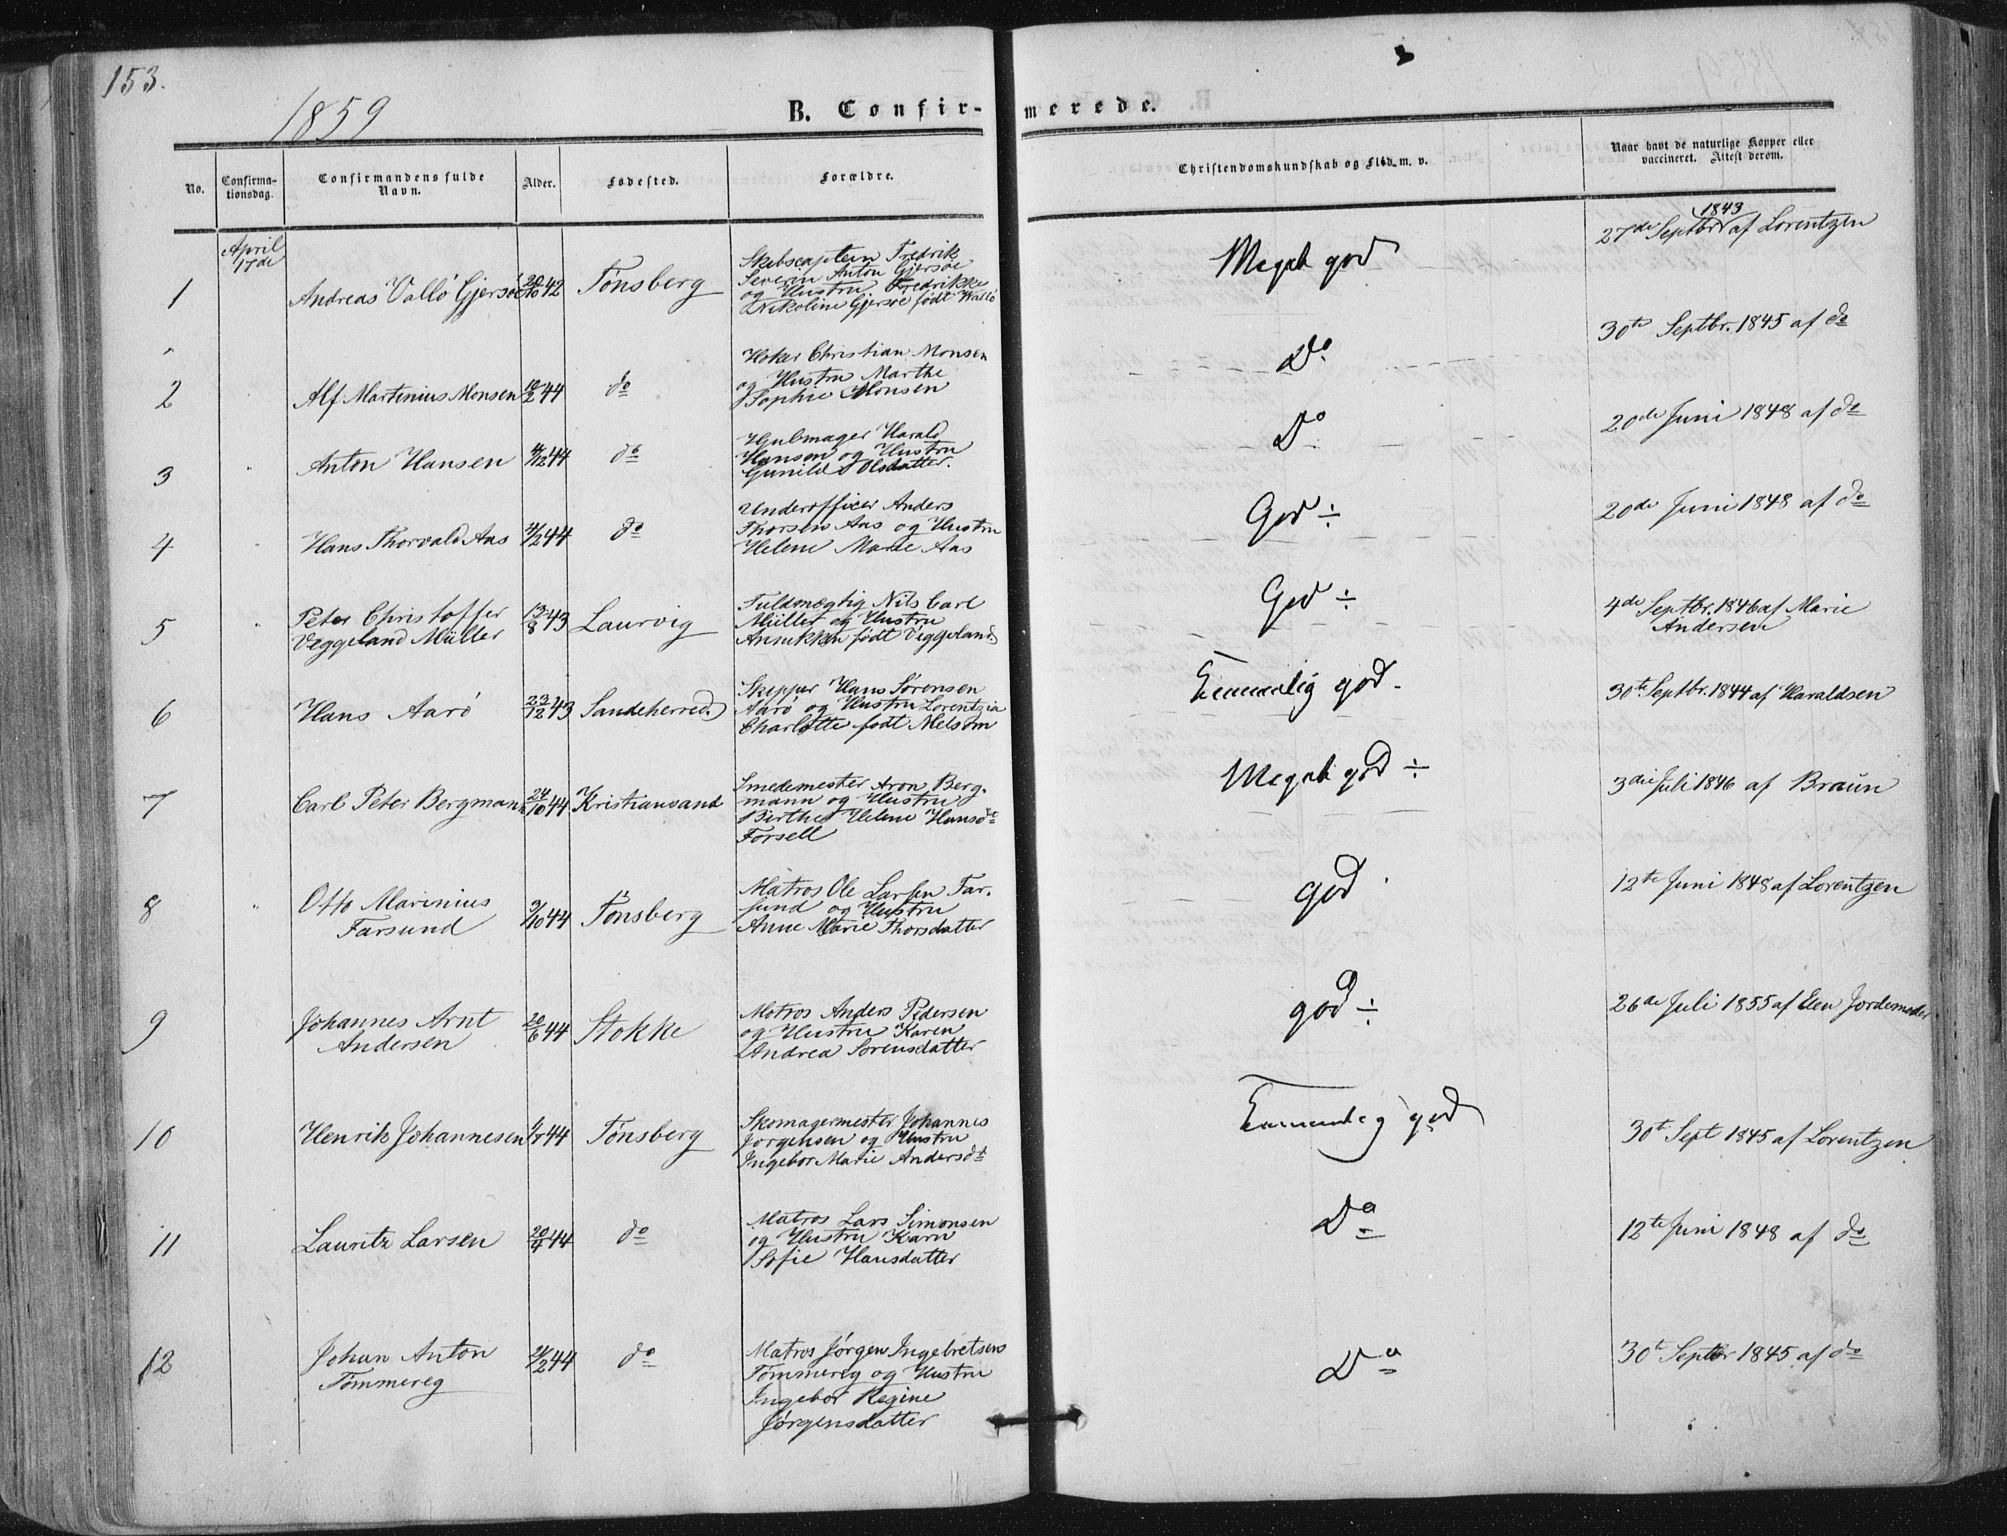 153.
1859
B. Confir-
merede.
No.
Confirma-
tionsdag.
Confirmandens fulde
Navn.
Alder.
Fødested.
Forældre.
Christendomskundskab og Flid m. v.
Naar havt de naturlige Kopper eller
vaccineret. Attest derom.
April
17de
1
Andreas Vallö Gjersöe
20/10 42
Tønsberg
Skibscaptein Fredrik
Severin Anton Gjersøe
og Hustru Fredrikke
Nikoline Gjersøe født Wallö
Meget god
1843
27de Septbr af Lorentzen
2
Alf Martinius Monsen
10/2 44
do
Høker Christian Monsen
og Hustru Marthe
Sophie Monsen
Do
30te Septbr. 1845 af do
3
Anton Hansen
44
do
Hjulmager Harald
Hansen og Hustru
Gunild Olsdatter.
Do
20de Juni 1848 af do
4
Hans Thorvald Aas
44
do
Underofficer Anders
Thorsen Aas og Hustru
Helene Marie Aas
God ÷
20de Juni 1848 af do
5
Peter Christoffer
Veggeland Müller
13/8 43
Laurvig
Fuldmægtig Nils Carl
Müller og Hustru
født Veggeland
God ÷
4de Septbr. 1846 af Marie
Andersen
6
Hans Aarö
23/12 43
Sandeherred
Skipper Hans Sørensen
Aarø og Hustru Lorentzia
Charlotte født Melsom
Temmelig god.
30te Septbr. 1844 af Haraldsen
7
Carl Peter Bergmann
24/10 44
Kristiansand
Smedemester Aron Berg-
mann og Hustru
Birthe Helene Hansdt
Forsell
Meget god ÷
3die Juli 1846 af Braun
8
Otto Marinius
Farsund
9/10 44
Tønsberg
Matros Ole Larsen Far-
sund og Hustru
Anne Marie Thorsdatter
god
12te Juni 1848 af Lorentzen
9
Johannes Arnt
Andersen
20/6 44
Stokke
Matros Anders Pedersen
og Hustru Karen
Andrea Sørensdatter
god ÷
26de Juli 1855 af Jordemoder
10
Henrik Johannesen
44
Tønsberg
Skomagermester Johannes
Jørgensen og Hustru
Ingebor Marie Andersdt
Temmelig god
30t Sept 1845 af Lorentzen
11
Lauritz Larsen
20/4 44
do
Matros Lars Simonsen
og Hustru Karn
Sofie Hansdatter
Do
12te Juni 1848 af do
12
Johan Anton
Tømmereg
44
do
Matros Jørgen Ingebretsen
Tømmereg og Hustru
Ingebor Regine
Jørgensdatter
Do
30t Septbr 1845 af do